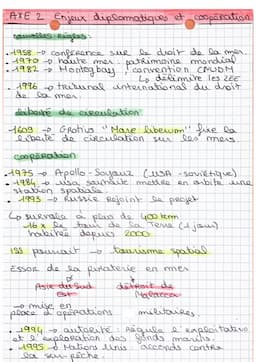 AXE 2 Enjeux diplomatiques et coopération
nouvelles règles:
• 1958 → conférence sur le droit de la mer.
• 1970 → haute mer : patrimoine mondial
• 1982 → Montego bay / convention CNUDM
↳ délimite les ZEE
• 1996 → tribunal international du droit
de la mer
liberté de circulation
• 1609 → Grotius "Mare liberum" fixe la
liberté de circulation sur les mers
coopération
• 1975 → Apollo-Soyouz (USA - soviétique)
• 1984 → USA souhaite mettre en orbite une
station spatiale
• 1993 → Russie rejoint le projet
↳ survole à plus de 400 km
16 x le tour de la Terre (1 jour)
habitée depuis 2000
ISS pourrait → tourisme spatial
Essor de la piraterie en mer
Asie du Sud détroit de
Est Malacca
→ mise en
place d'opérations militaires.
• 1994 → autorité : régule l'exploitation
et l'exploration des fonds marins.
• 1995 → Nations Unies accords contre
la sur-pêche.